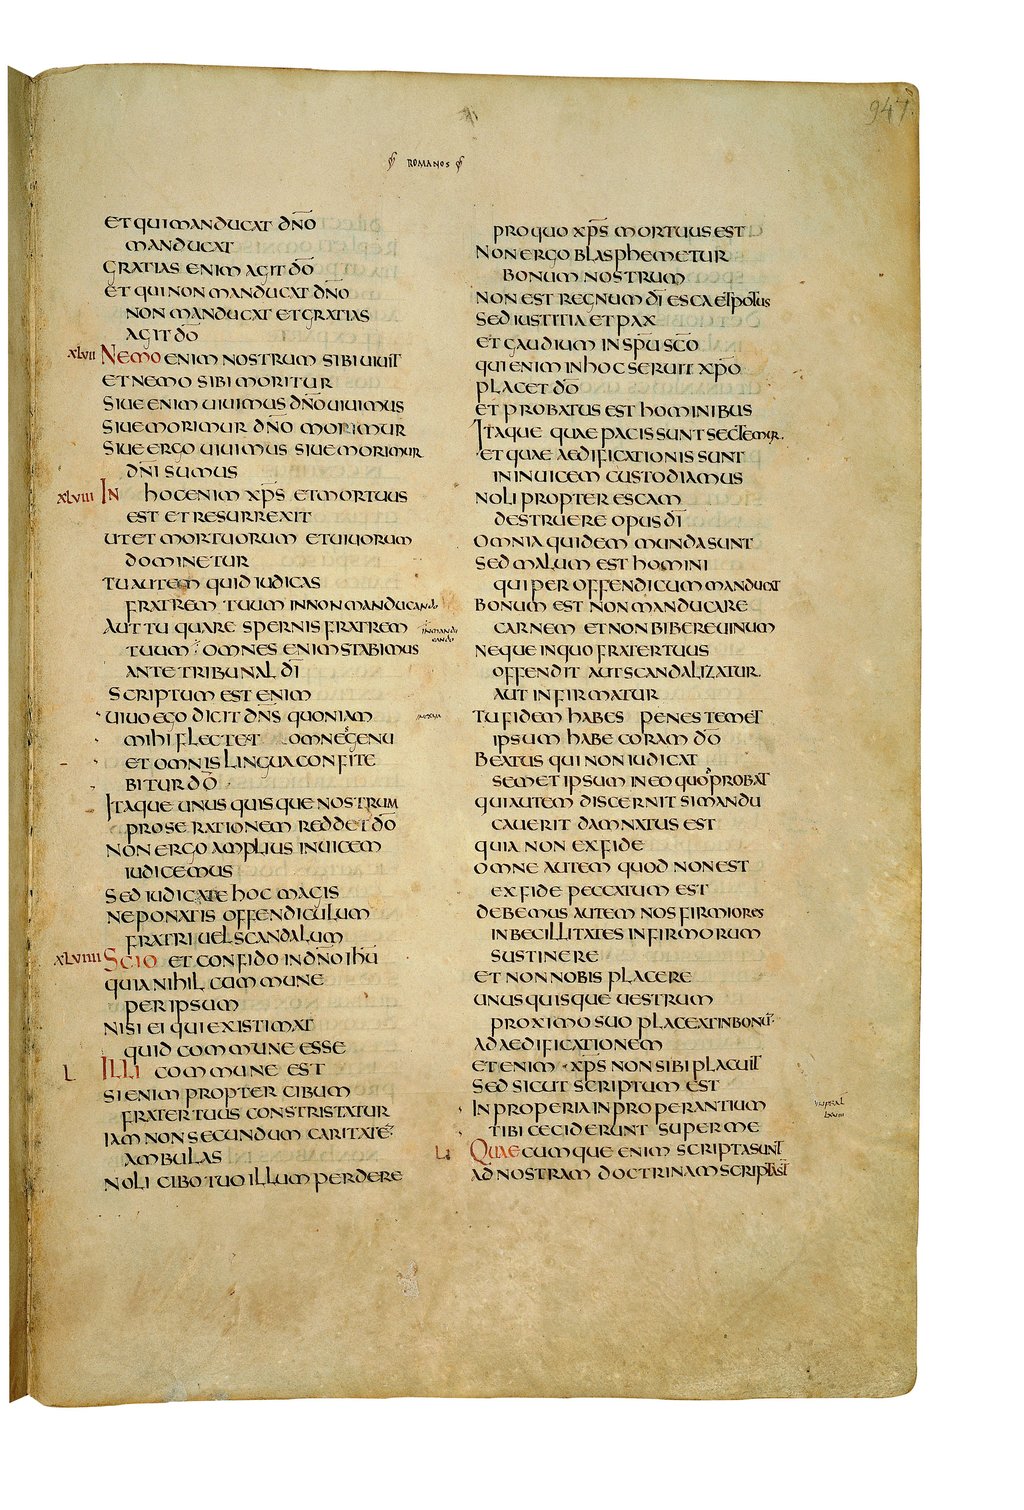 947
ROMANOS
ET QUI MANDUCAT DN̄O
MANDUCAT
GRATIAS ENIM AGIT D̄O
ET QUI NON MANDUCAT DN̄O
NON MANDUCAT ET GRATIAS
AGIT D̄O
XLVII NEMO ENIM NOSTRUM SIBI UIUIT
ET NEMO SIBI MORITUR
SIUE ENIM UIUIMUS DN̄O UIUIMUS
SIUE MORIMUR DN̄O MORIMUR
SIUE ERGO UIUIMUS SIUE MORIMUR
DN̄I SUMUS
XLVIII IN HOC ENIM XP̄S ET MORTUUS
EST ET RESURREXIT
UT ET MORTUORUM ET UIUORUM
DOMINETUR
TU AUTEM QUID IUDICAS
FRATREM TUUM IN NON MANDUCANDO
AUT TU QUARE SPERNIS FRATREM
IN MANDUCANDO
TUUM OMNES ENIM STABIMUS
ANTE TRIBUNAL D̄I
SCRIPTUM EST ENIM
UIUO EGO DICIT DN̄S QUONIAM
MIHI FLECTET OMNE GENU
ET OMNIS LINGUA CONFITE
BITUR D̄O
ITAQUE UNUS QUISQUE NOSTRUM
PRO SE RATIONEM REDDET D̄O
NON ERGO AMPLIUS INUICEM
IUDICEMUS
SED IUDICATE HOC MAGIS
NE PONATIS OFFENDICULUM
FRATRI UEL SCANDALUM
XLVIIII SCIO ET CONFIDO IN DN̄O IHŪ
QUIA NIHIL COMMUNE
PER IPSUM
NISI EI QUI EXISTIMAT
QUID COMMUNE ESSE
L ILLI COMMUNE EST
SI ENIM PROPTER CIBUM
FRATER TUUS CONSTRISTATUR
IAM NON SECUNDUM CARITATĒ
AMBULAS
NOLI CIBO TUO ILLUM PERDERE
PRO QUO XP̄S MORTUUS EST
NON ERGO BLASPHEMETUR
BONUM NOSTRUM
NON EST REGNUM D̄I ESCA ET POTUS
SED IUSTITIA ET PAX
ET GAUDIUM IN SPŪ SC̄O
QUI ENIM IN HOC SERUIT XP̄O
PLACET D̄O
ET PROBATUS EST HOMINIBUS
ITAQUE QUAE PACIS SUNT SECTEMUR
ET QUAE AEDIFICATIONIS SUNT
IN INUICEM CUSTODIAMUS
NOLI PROPTER ESCAM
DESTRUERE OPUS D̄I
OMNIA QUIDEM MUNDA SUNT
SED MALUM EST HOMINI
QUI PER OFFENDICUM MANDUCAT
BONUM EST NON MANDUCARE
CARNEM ET NON BIBERE UINUM
NEQUE IN QUO FRATER TUUS
OFFENDIT AUT SCANDALIZATUR
AUT INFIRMATUR
TU FIDEM HABES PENES TEMET
IPSUM HABE CORAM D̄O
BEATUS QUI NON IUDICAT
SEMET IPSUM IN EO QUO PROBAT
QUI AUTEM DISCERNIT SI MANDU
CAUERIT DAMNATUS EST
QUIA NON EX FIDE
OMNE AUTEM QUOD NON EST
EX FIDE PECCATUM EST
DEBEMUS AUTEM NOS FIRMIORES
INBECILLITATES INFIRMORUM
SUSTINERE
ET NON NOBIS PLACERE
UNUSQUISQUE UESTRUM
PROXIMO SUO PLACEAT IN BONŪ
AD AEDIFICATIONEM
ET ENIM XP̄S NON SIBI PLACUIT
SED SICUT SCRIPTUM EST
INPROPERIA INPROPERANTIUM
TIBI CECIDERUNT SUPER ME
LI QUAECUMQUE ENIM SCRIPTA SUNT
AD NOSTRAM DOCTRINAM SCRIPTA ST̄